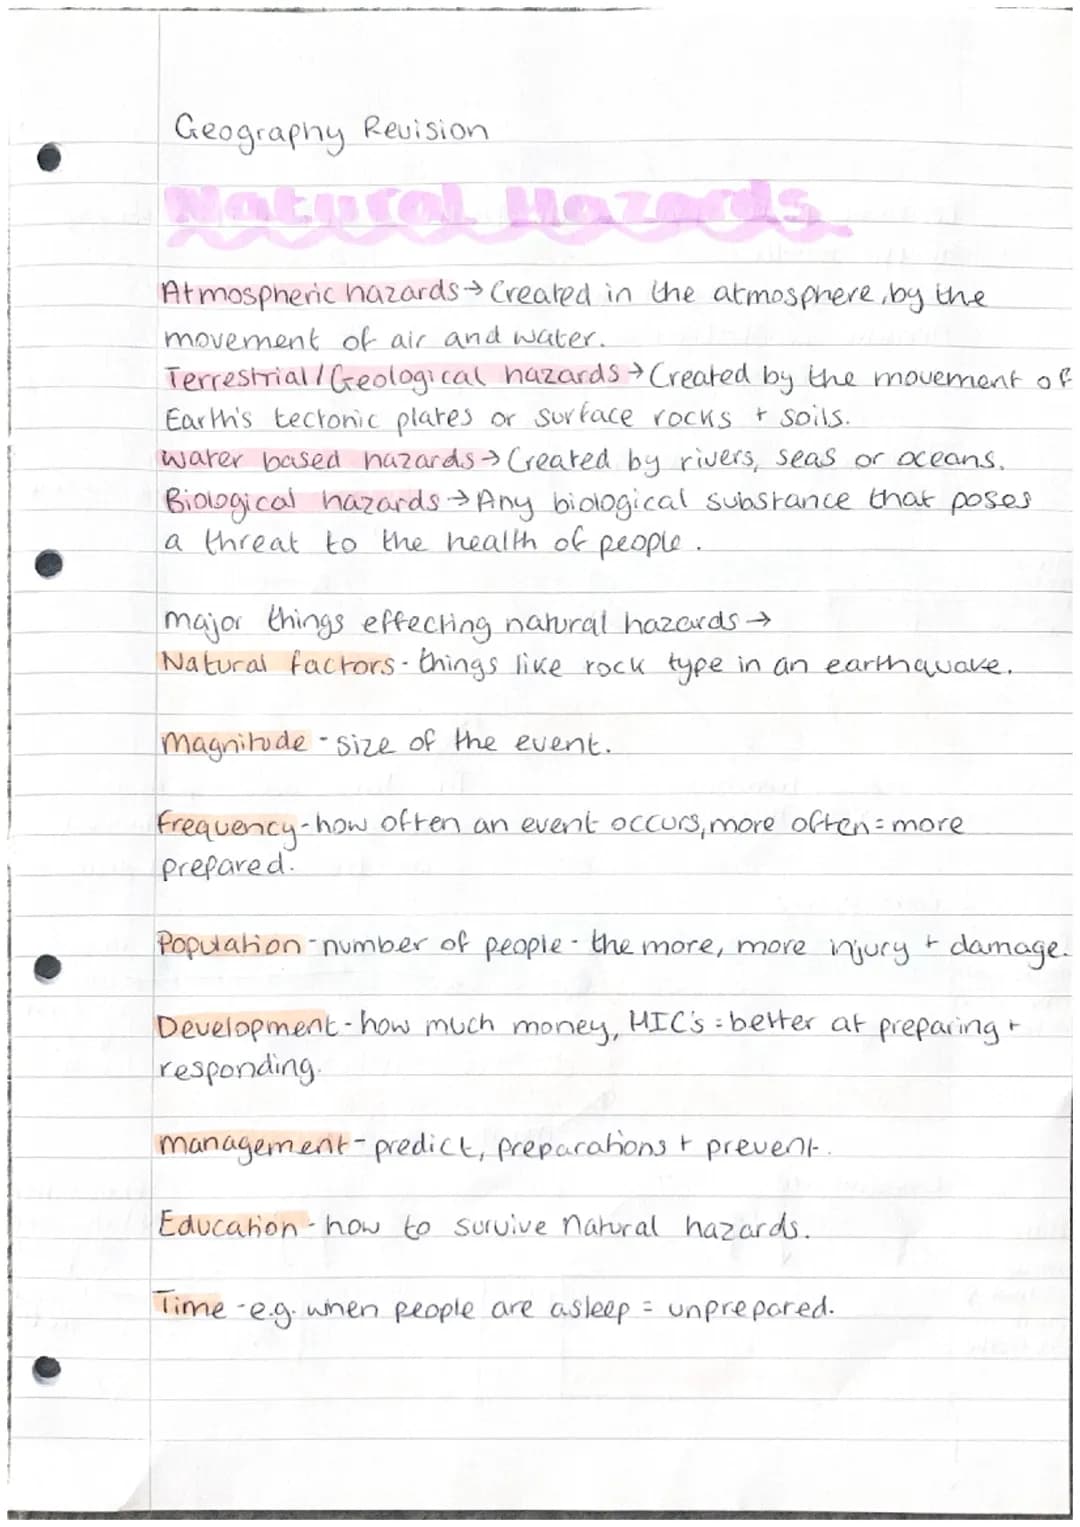 Geography Revision
Natural Hazards
Atmospheric hazards → Created in the atmosphere, by the
movement of air and water.
Terrestrial/Geological hazards → Created by the movement of
Earth's tectonic plates or surface rocks + soils.
Water based hazards → Created by rivers, seas or oceans.
Biological hazards → Any biological substance that poses
a threat to the health of people.
major things effecting natural hazards →
Natural factors - things like rock type in an earthquake.
Magnitude - size of the event.
frequency - how often an event occurs, more often = more
prepared.
Population - number of people - the more, more injury + damage.
Development - how much money, HIC's = better at preparing +
responding.
management - predict, preparations + prevent.
Education - how to survive natural hazards.
Time - e.g. when people are asleep = unprepared.